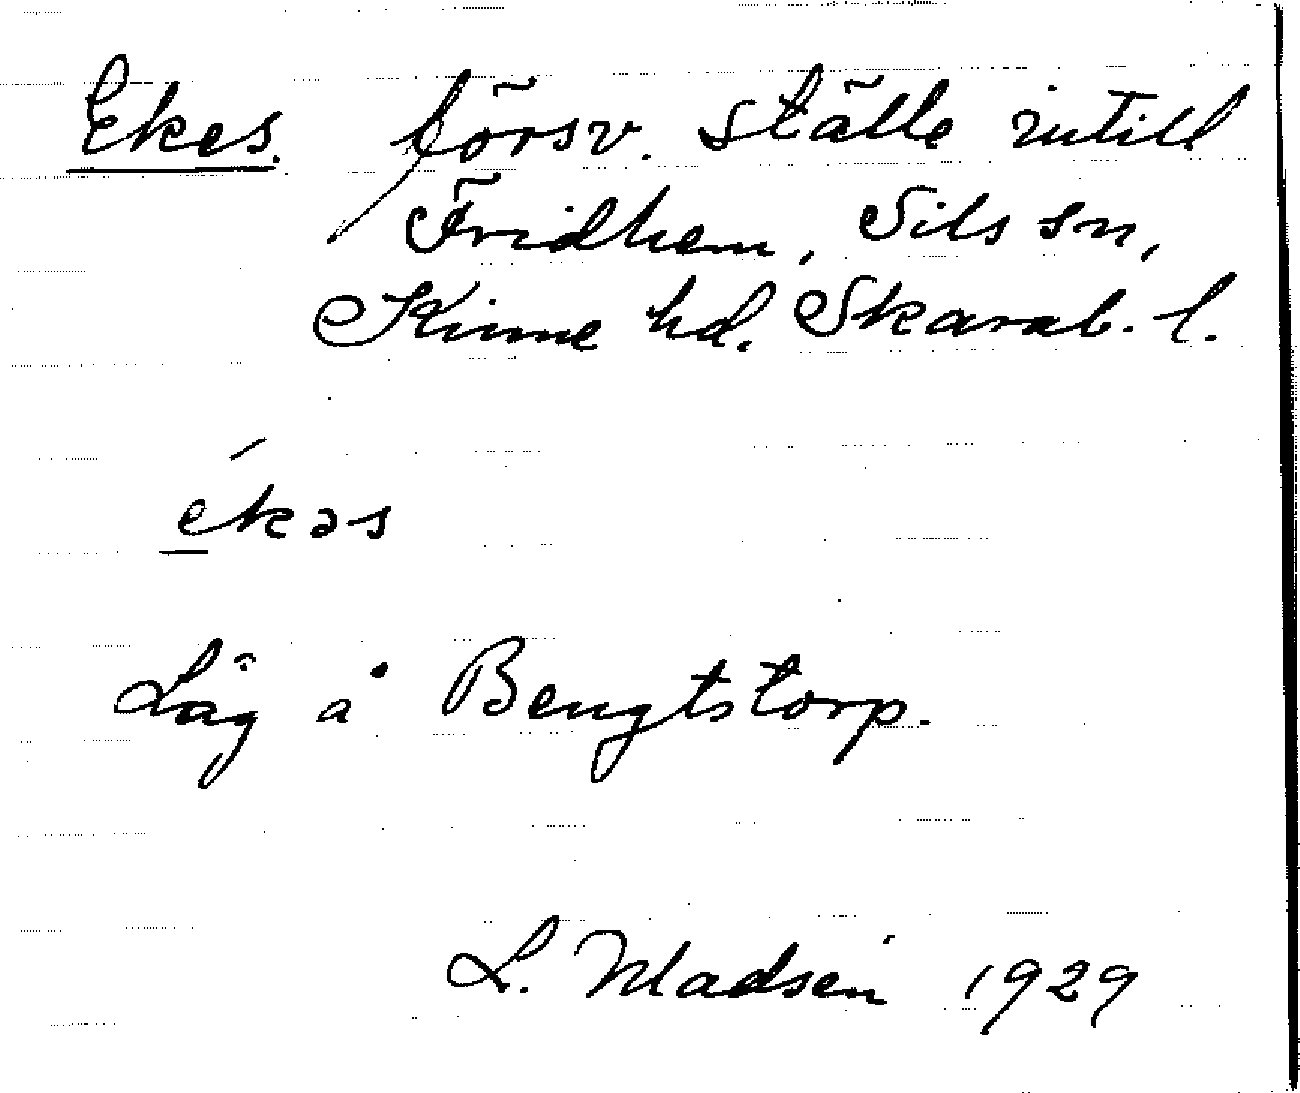 Ekes. försv. ställe intill
Fridhem, Sils sn,
Kinne hd. Skarab. l.
ékəs
Låg å Bengtstorp.
L. Madsén 1929